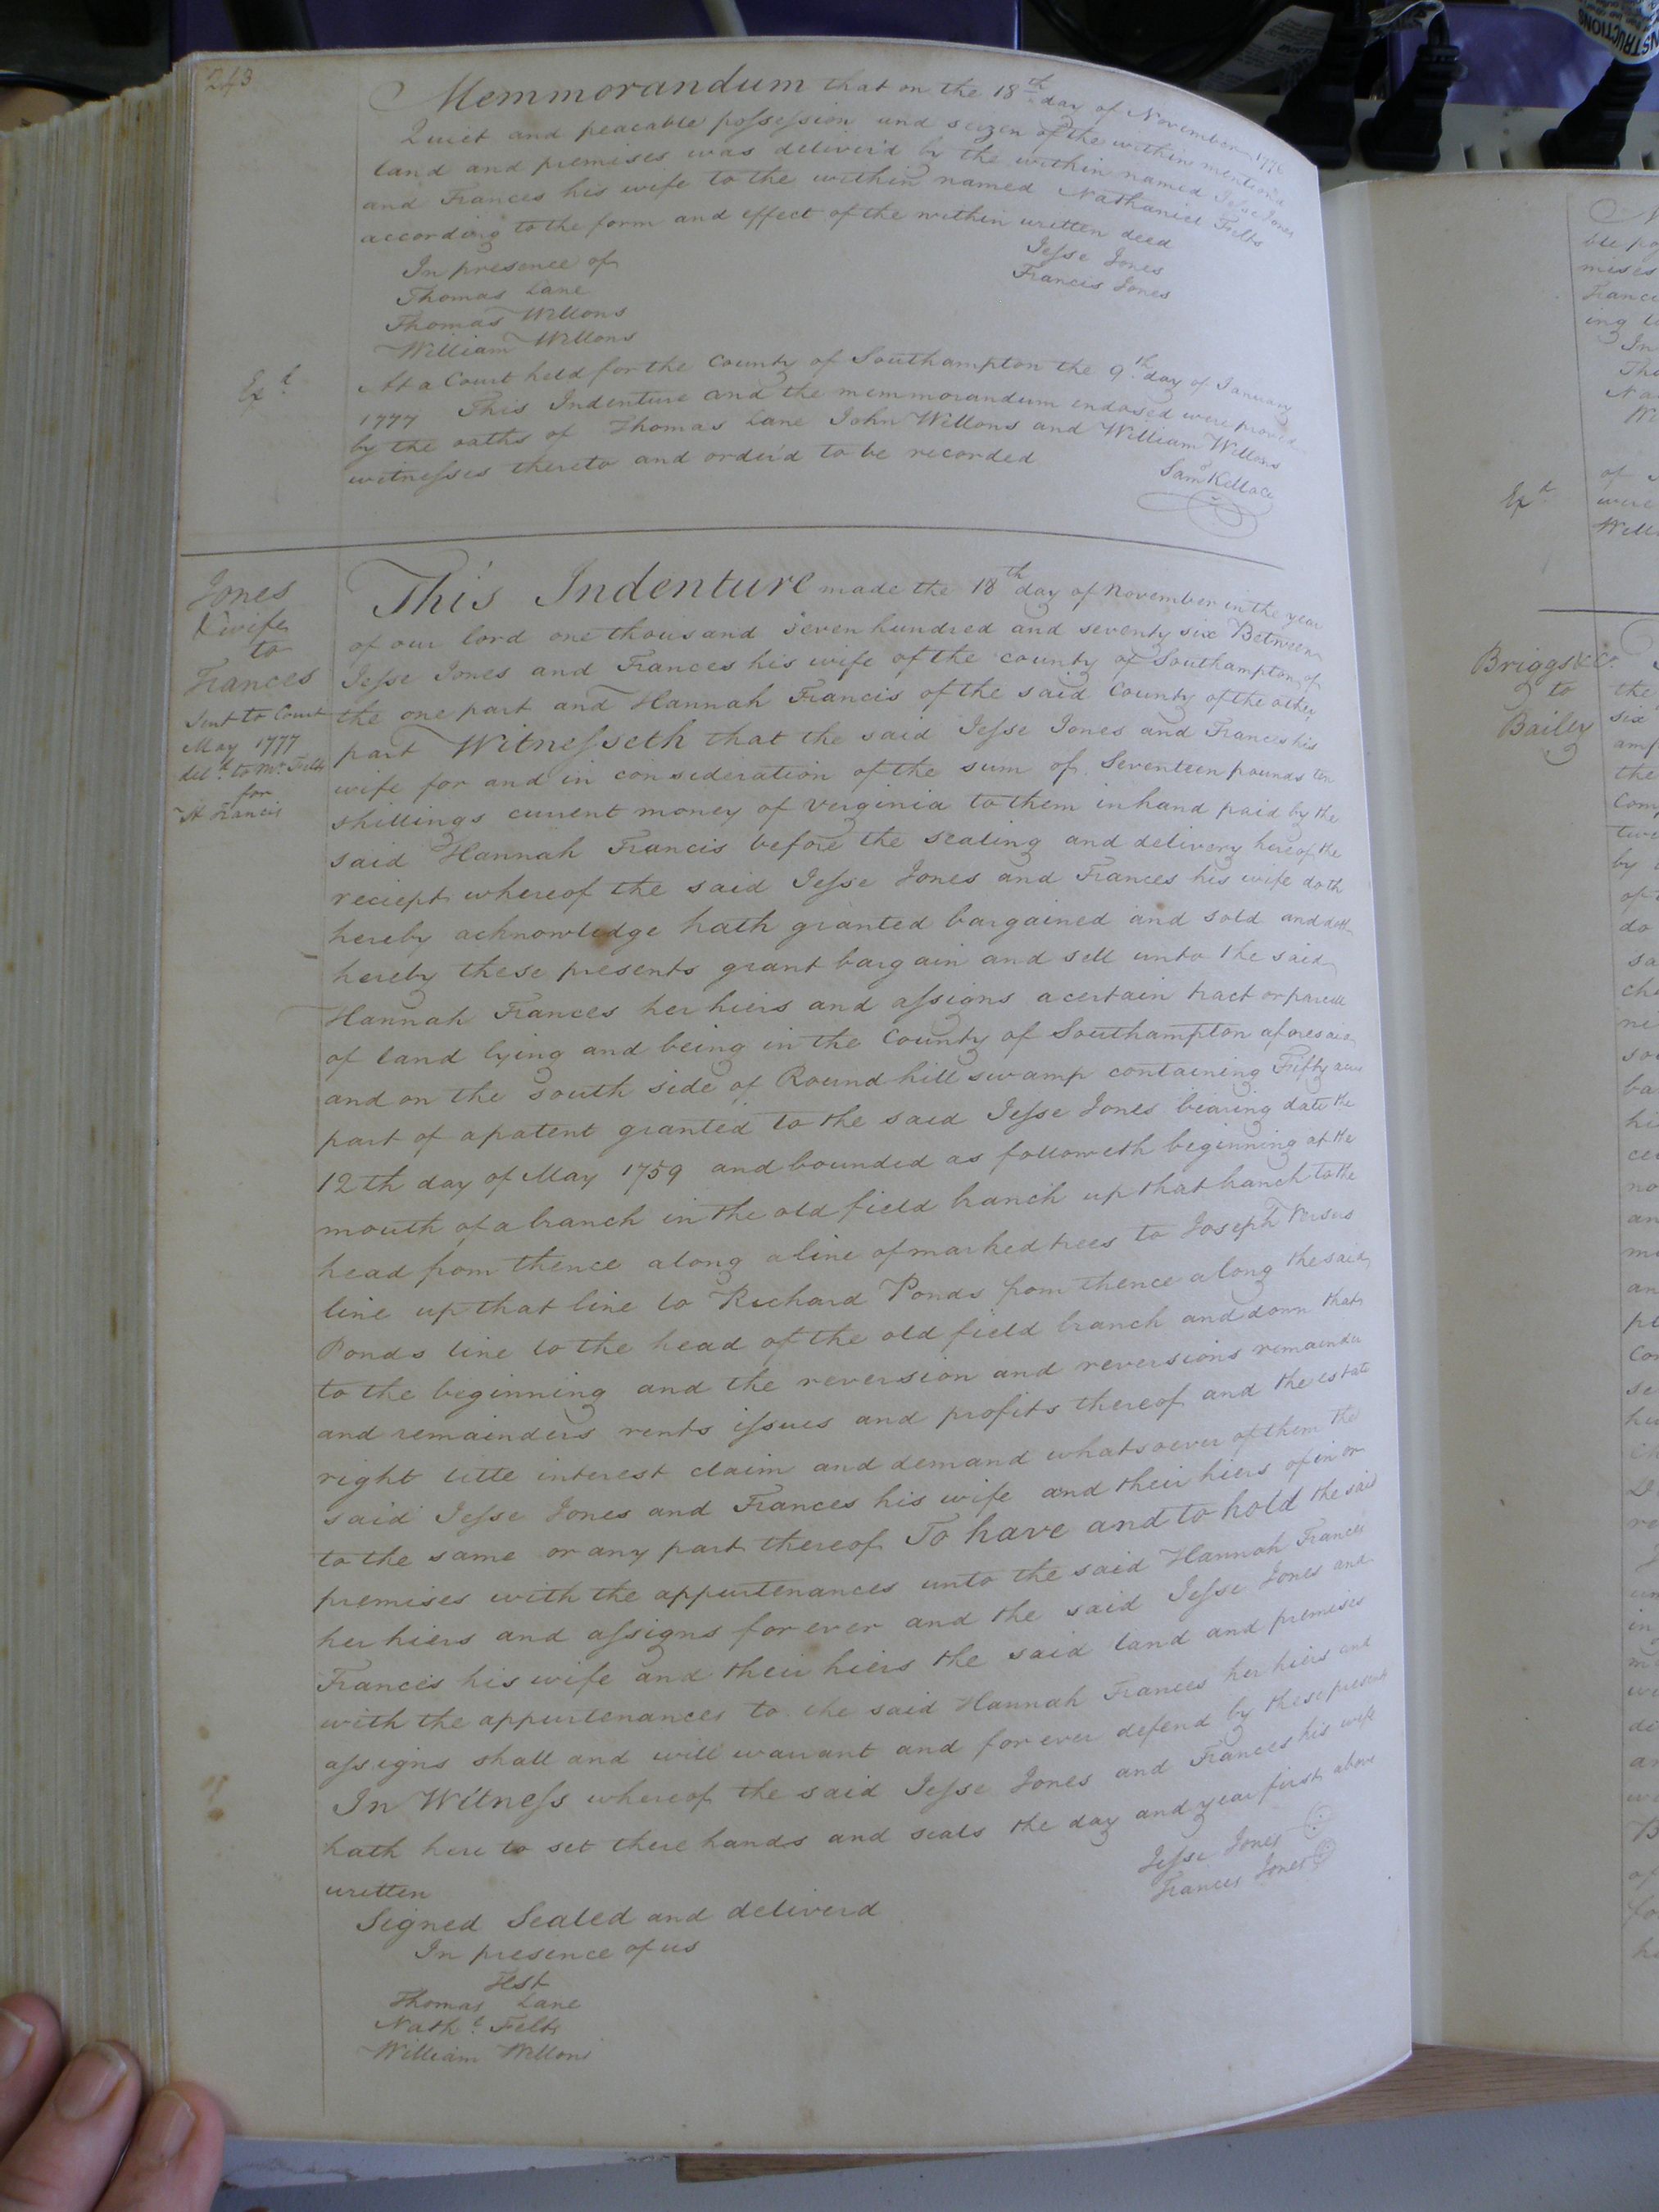 243
Memmorandum that on the 18th day of November 1776
Quiet and peacable possession and seizen of the within mention'd
land and premises was deliver'd by the within named Jesse Jones
and Frances his wife to the within named Nathaniel Felts
according to the form and effect of the within written deed
Jesse Jones
Francis Jones
In presence of
Thomas Lane
Thomas Wellons
William Wellons
Exd
At a Court held for the County of Southampton the 9th day of January
1777 This Indenture and the memmorandum endosed were proved
by the oaths of Thomas Lane John Wellons and William Wellons
witnesses thereto and order'd to be recorded
Saml Kello
Jones
& wife
to
Frances
Sent to Court
May 1777
deld to Mr Felts
for
H Francis
This Indenture made the 18th day of November in the year
of our lord one thousand seven hundred and seventy six Between
Jesse Jones and Frances his wife of the county of Southampton of
the one part and Hannah Francis of the said County of the other
part Witnesseth that the said Jesse Jones and Frances his
wife for and in consideration of the sum of Seventeen pounds ten
shillings current money of Verginia to them in hand paid by the
said Hannah Francis before the sealing and delivery hereof the
reciept whereof the said Jesse Jones and Frances his wife doth
hereby acknowledge hath granted bargained and sold and doth
hereby these presents grant bargain and sell unto the said
Hannah Frances her hiers and assigns a certain tract or parcell
of land lying and being in the County of Southampton aforesaid
and on the south side of Round hill swamp containing Fifty acres
part of a patent granted to the said Jesse Jones bearing date the
12th day of May 1759 and bounded as followeth beginning at the
mouth of a branch in the old field branch up that branch to the
head from thence along a line of marked trees to Joseph
line up that line to Richard Ponds from thence along the said
Ponds line to the head of the old field branch and down that
to the beginning and the reversion and reversions remainder
and remainders rents issues and profits thereof and the estate
right title interest claim and demand whatsoever of them the
said Jesse Jones and Frances his wife and their hiers of in or
to the same or any part thereof To have and to hold the said
premises with the appurtenances unto the said Hannah Frances
her hiers and assigns for ever and the said Jesse Jones and
Francis his wife and their hiers the said land and premises
with the appurtenances to the said Hannah Frances her hiers and
assigns shall and will warrant and for ever defend by these presents
In Witness whereof the said Jesse Jones and Frances his wife
hath here to set there hands and seals the day and year first above
written
Jesse Jones
Frances Jones
Signed Sealed and deliverd
In presence of us
Test
Thomas Lane
Nathl Felts
William Wellons
Exd
Briggs &c.
to
Bailey